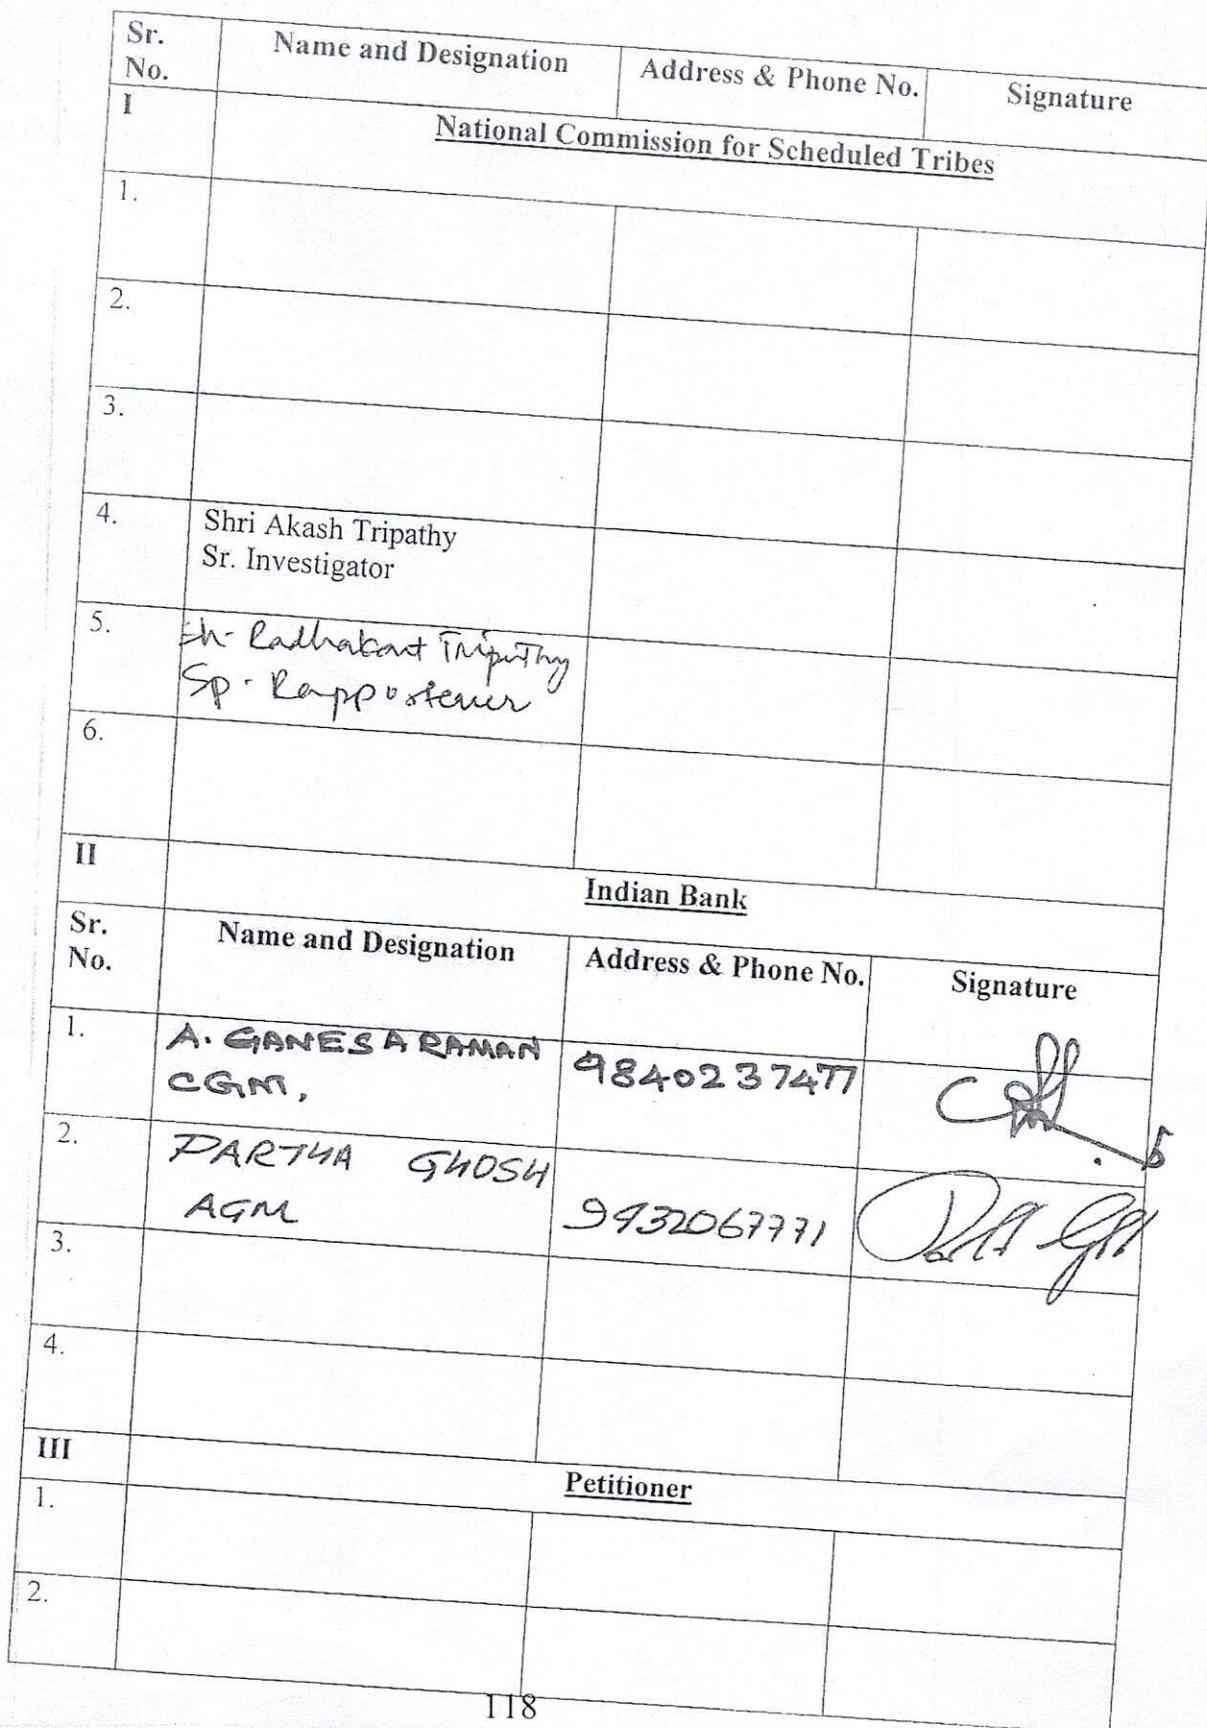 Sr. No. Name and Designation Address & Phone No. Signature
I National Commission for Scheduled Tribes
1.
2.
3.
4. Shri Akash Tripathy
Sr. Investigator
5. Sh- Radhakant Tripathy
Sp. Rapporteur
6.
II Indian Bank
Sr. No. Name and Designation Address & Phone No. Signature
1. A. GANESARAMAN 9840237477
CGM,
2. PARTHA GHOSH
AGM 9432067771
3.
4.
III Petitioner
1.
2.
118